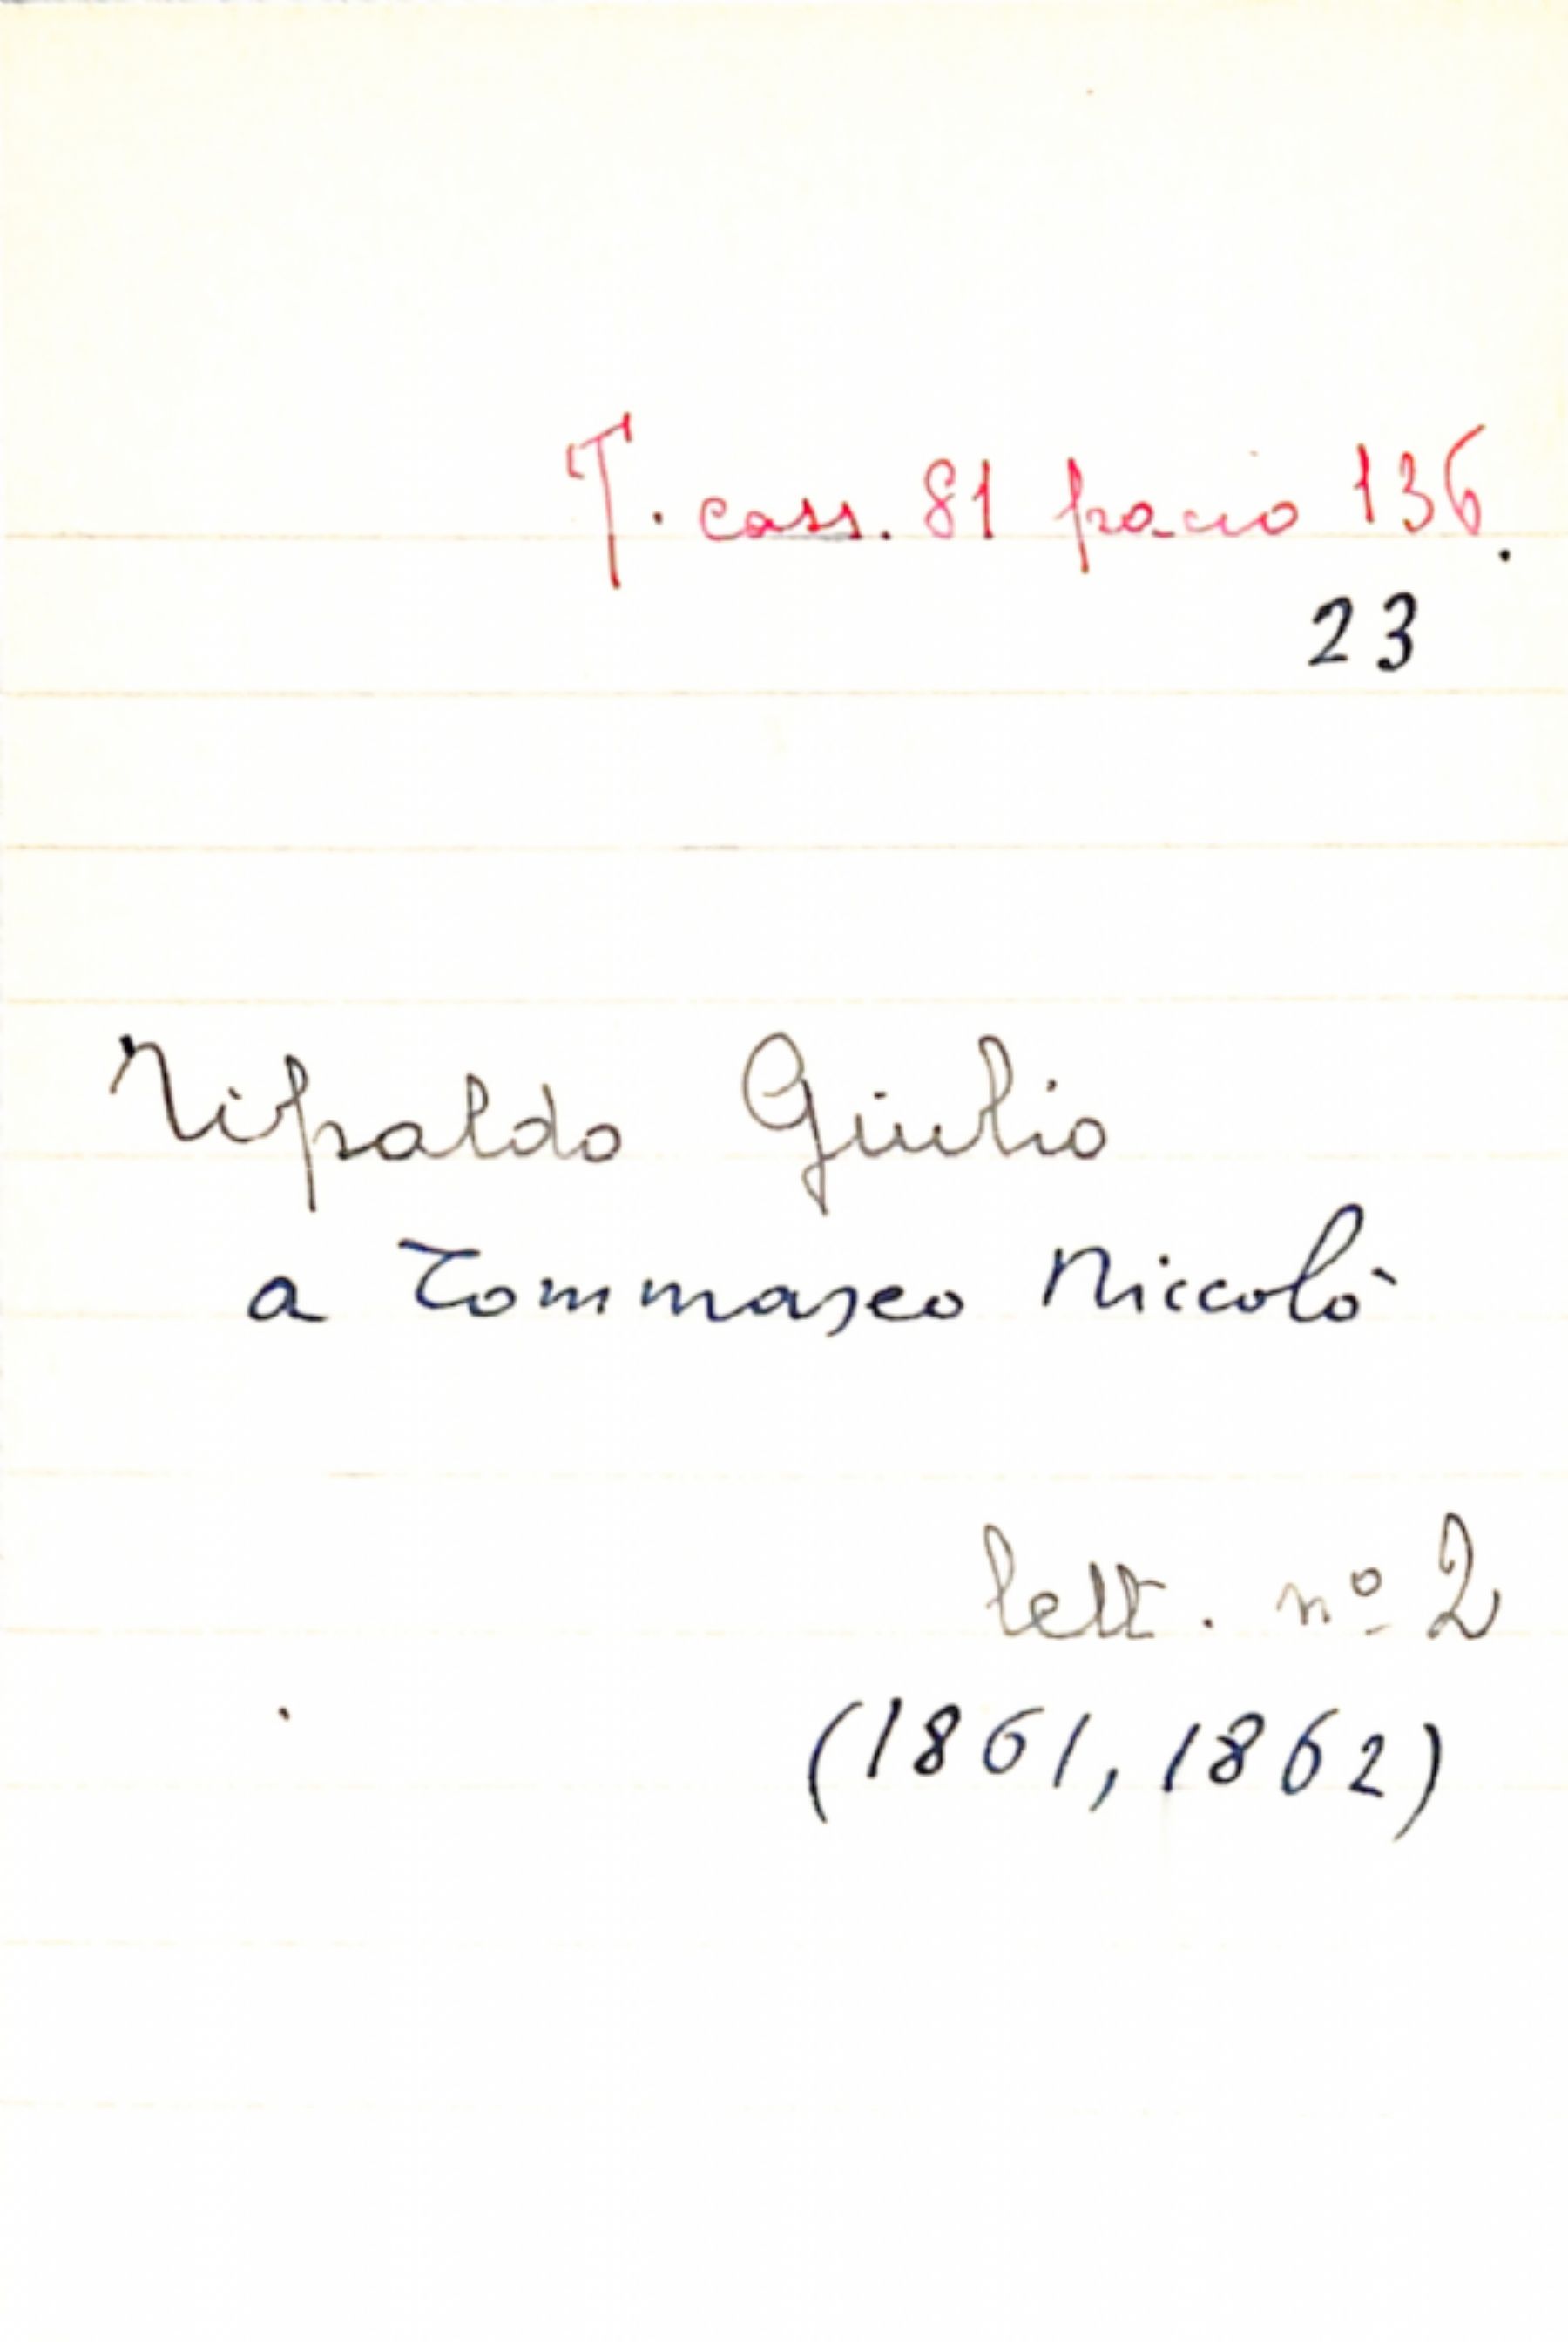 T. cass. 81 pacco 136.
23
Tipaldo Giulio
a Tommaseo Niccolò
lett. nº 2
(1861, 1862)